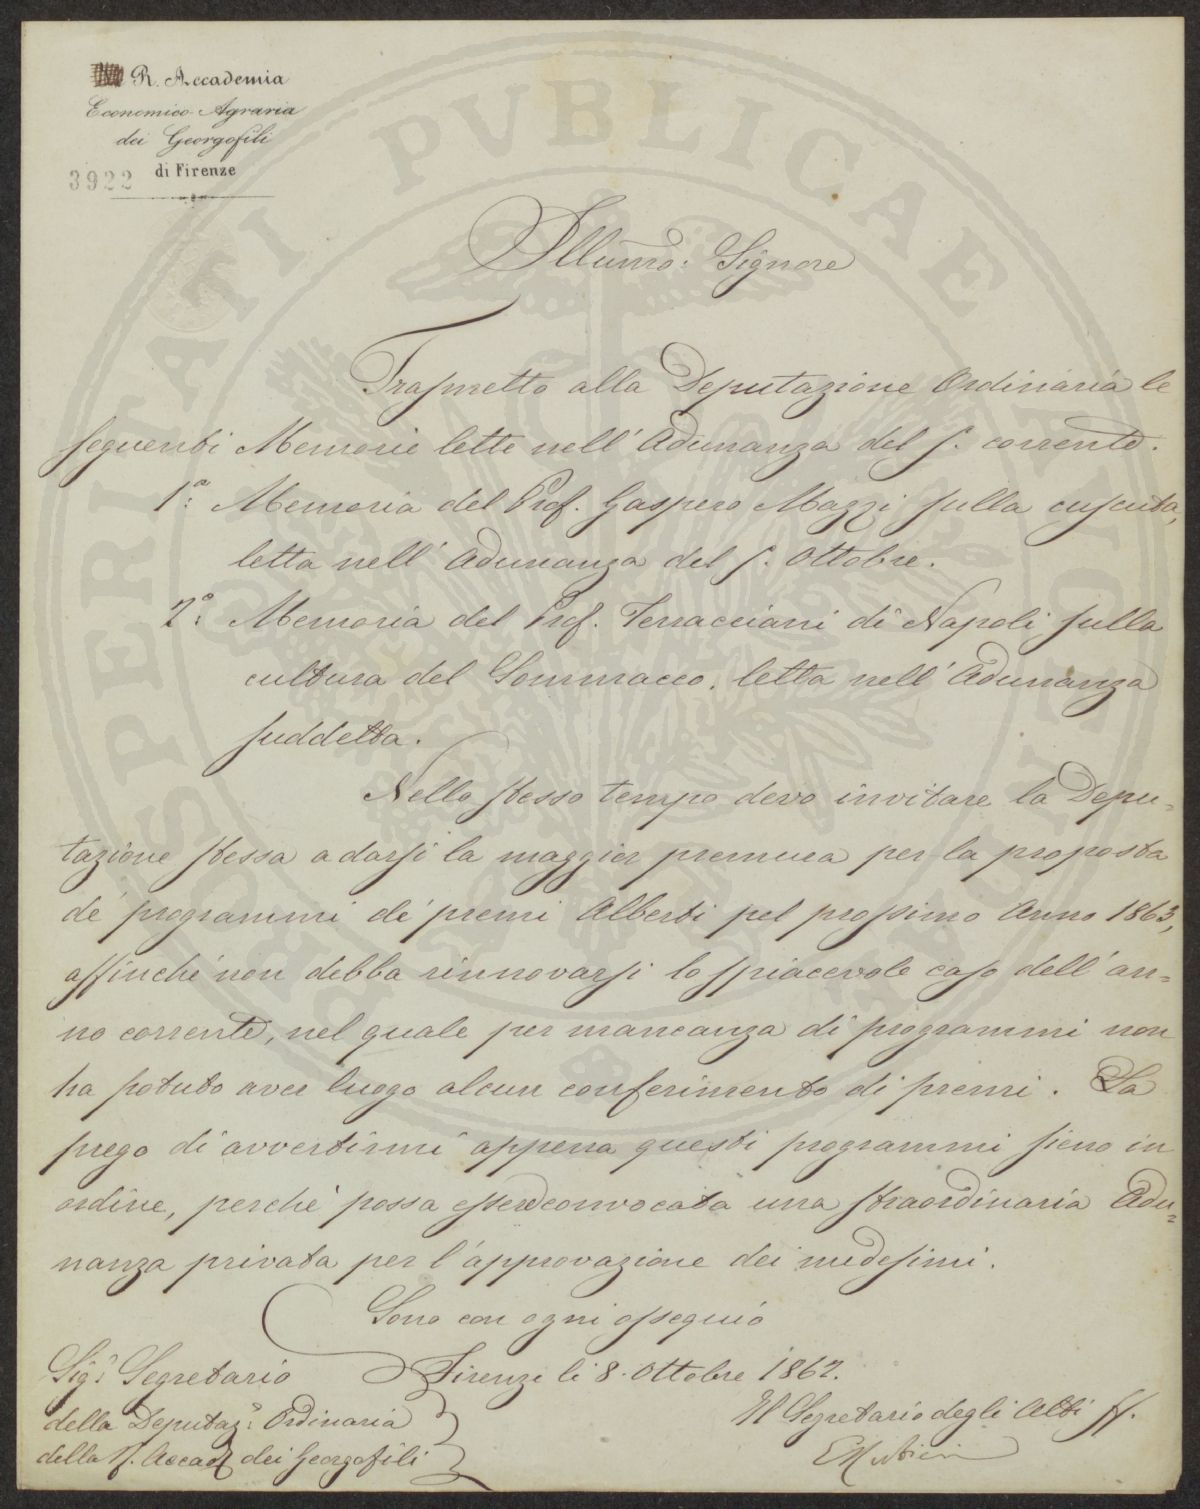 R. Accademia
Economico-Agraria
dei Georgofili
di Firenze
3922
PROSPERITATI PVBLICAE AVGENDAE
Illumo: Signore
Trasmetto alla Deputazione Ordinaria le
seguenti Memorie lette nell'Adunanza del 5. corrente.
1.a Memoria del Prof. Gaspero Mazzi sulla cuscuta,
letta nell'Adunanza del 5. Ottobre.
2.a Memoria del Prof. Terracciani di Napoli sulla
cultura del Sommacco, letta nell'Adunanza
suddetta.
Nello stesso tempo devo invitare la Depu=
tazione stessa a darsi la maggior premura per la proposta
de' programmi de' premi Alberti pel prossimo Anno 1863,
affinché non debba rinnovarsi lo spiacevole caso dell'an=
no corrente, nel quale per mancanza di programmi non
ha potuto aver luogo alcun conferimento di premi. La
prego di avvertirmi appena questi programmi sieno in
ordine, perchè possa essere convocata una straordinaria Adu=
nanza privata per l'approvazione dei medesimi.
Sono con ogni ossequio
Firenze li 8. Ottobre 1862.
Sig. Segretario
della Deputaz. Ordinaria
della R. Accad. dei Georgofili
Il Segretario degli Atti ff.